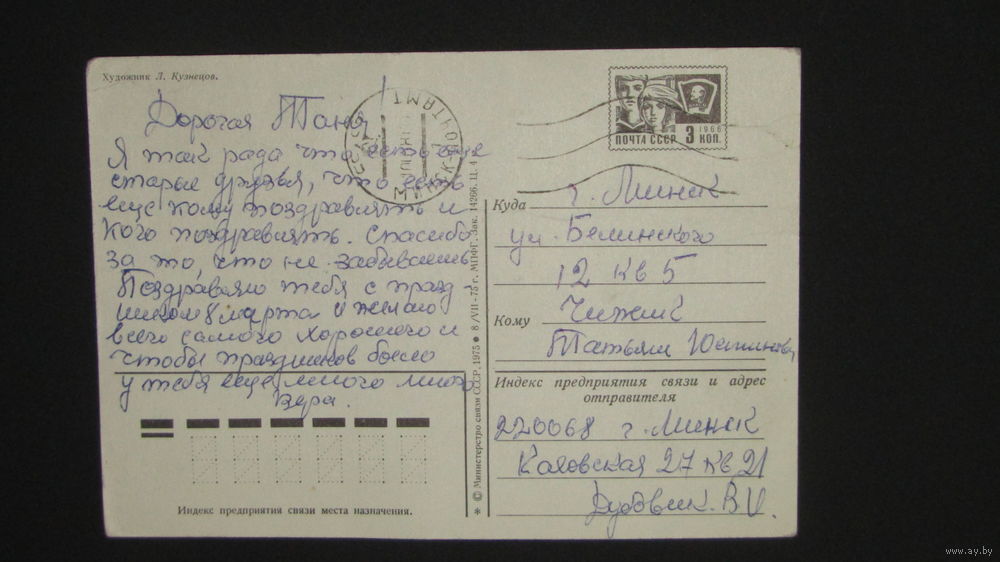 Художник Л. Кузнецов.
Дорогая Таня
Я так рада что есть еще
старые друзья, что есть
еще кому поздравлять и
кого поздравлять. Спасибо
за то, что не забываешь
Поздравляю тебя с празд-
ником 8 марта и желаю
всего самого хорошего и
чтобы праздников было
у тебя еще много много
Вера.
Индекс предприятия связи места назначения.
© Министерство связи СССР, 1975 ● 8/VII-75 г. МПФГ. Зак. 14266. Ц. 4 к.
ПОЧТА СССР 3 КОП.
1966
Куда г. Минск
ул. Белинского
12 кв 5
Кому Чижик
Татьяне
Индекс предприятия связи и адрес
отправителя
220068 г. Минск
Каховская 27 кв 21
Дудовик. В. И.
www.ay.by